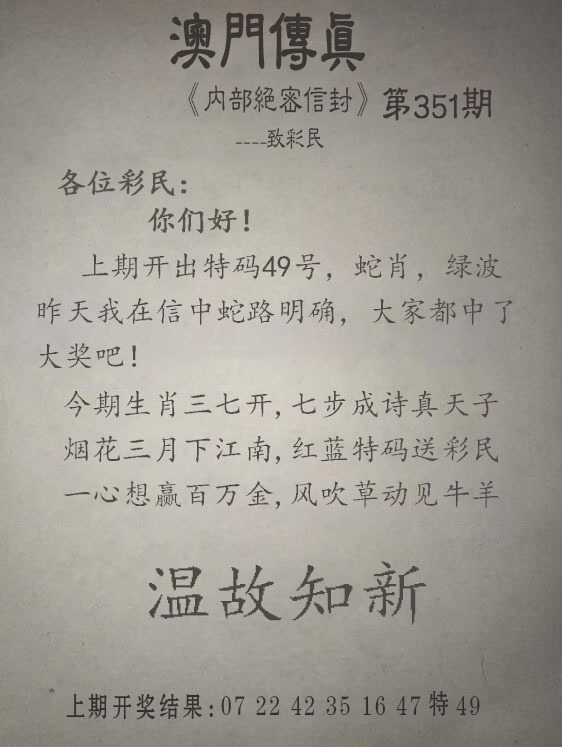 澳門傳真
《内部絕密信封》第351期
----致彩民
各位彩民：
你们好！
上期开出特码49号，蛇肖，绿波
昨天我在信中蛇路明确，大家都中了
大奖吧！
今期生肖三七开,七步成诗真天子
烟花三月下江南,红蓝特码送彩民
一心想赢百万金,风吹草动见牛羊
温故知新
上期开奖结果:07 22 42 35 16 47特49